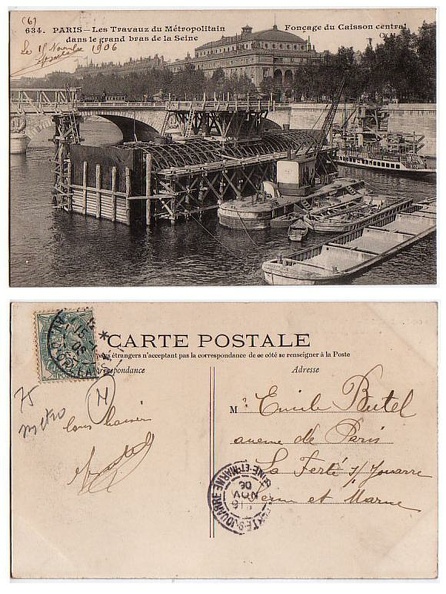 (6)
634. PARIS — Les Travaux du Métropolitain
dans le grand bras de la Seine
Fonçage du Caisson central
le 15 Novembre 1906
CARTE POSTALE
étrangers n'acceptant pas la correspondance de ce côté se renseigner à la Poste
Correspondance
Adresse
75
métro
bons baisers
M Emile Butel
avenue de Paris
La Ferté s/ Jouarre
Seine et Marne
SEINE-ET-MARNE
16
NOV
06